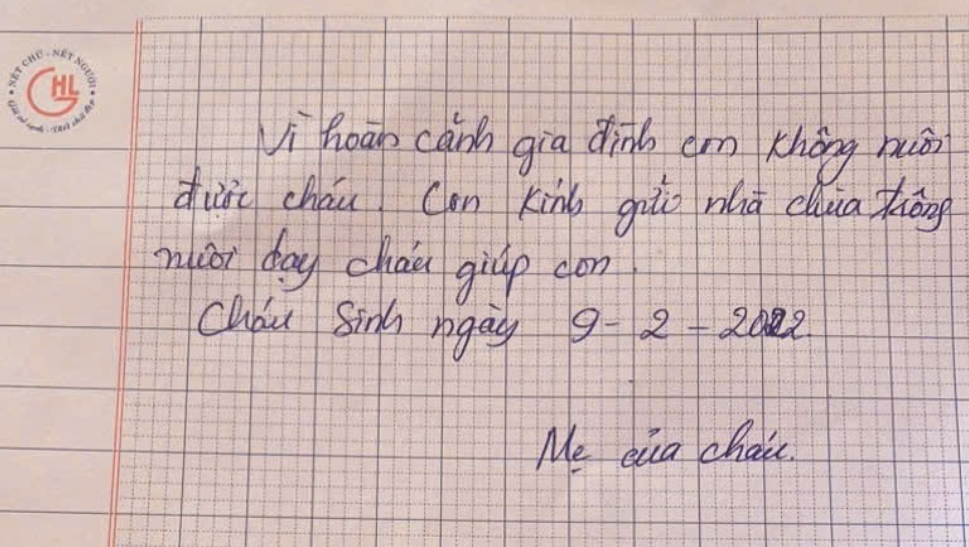 NÉT CHỮ - NẾT NGƯỜI
GHL
Vì hoàn cảnh gia đình con không nuôi
được cháu. Con kính gửi nhà chùa trông
nuôi dạy cháu giúp con.
Cháu Sinh ngày 9-2-2022.
Mẹ của cháu.